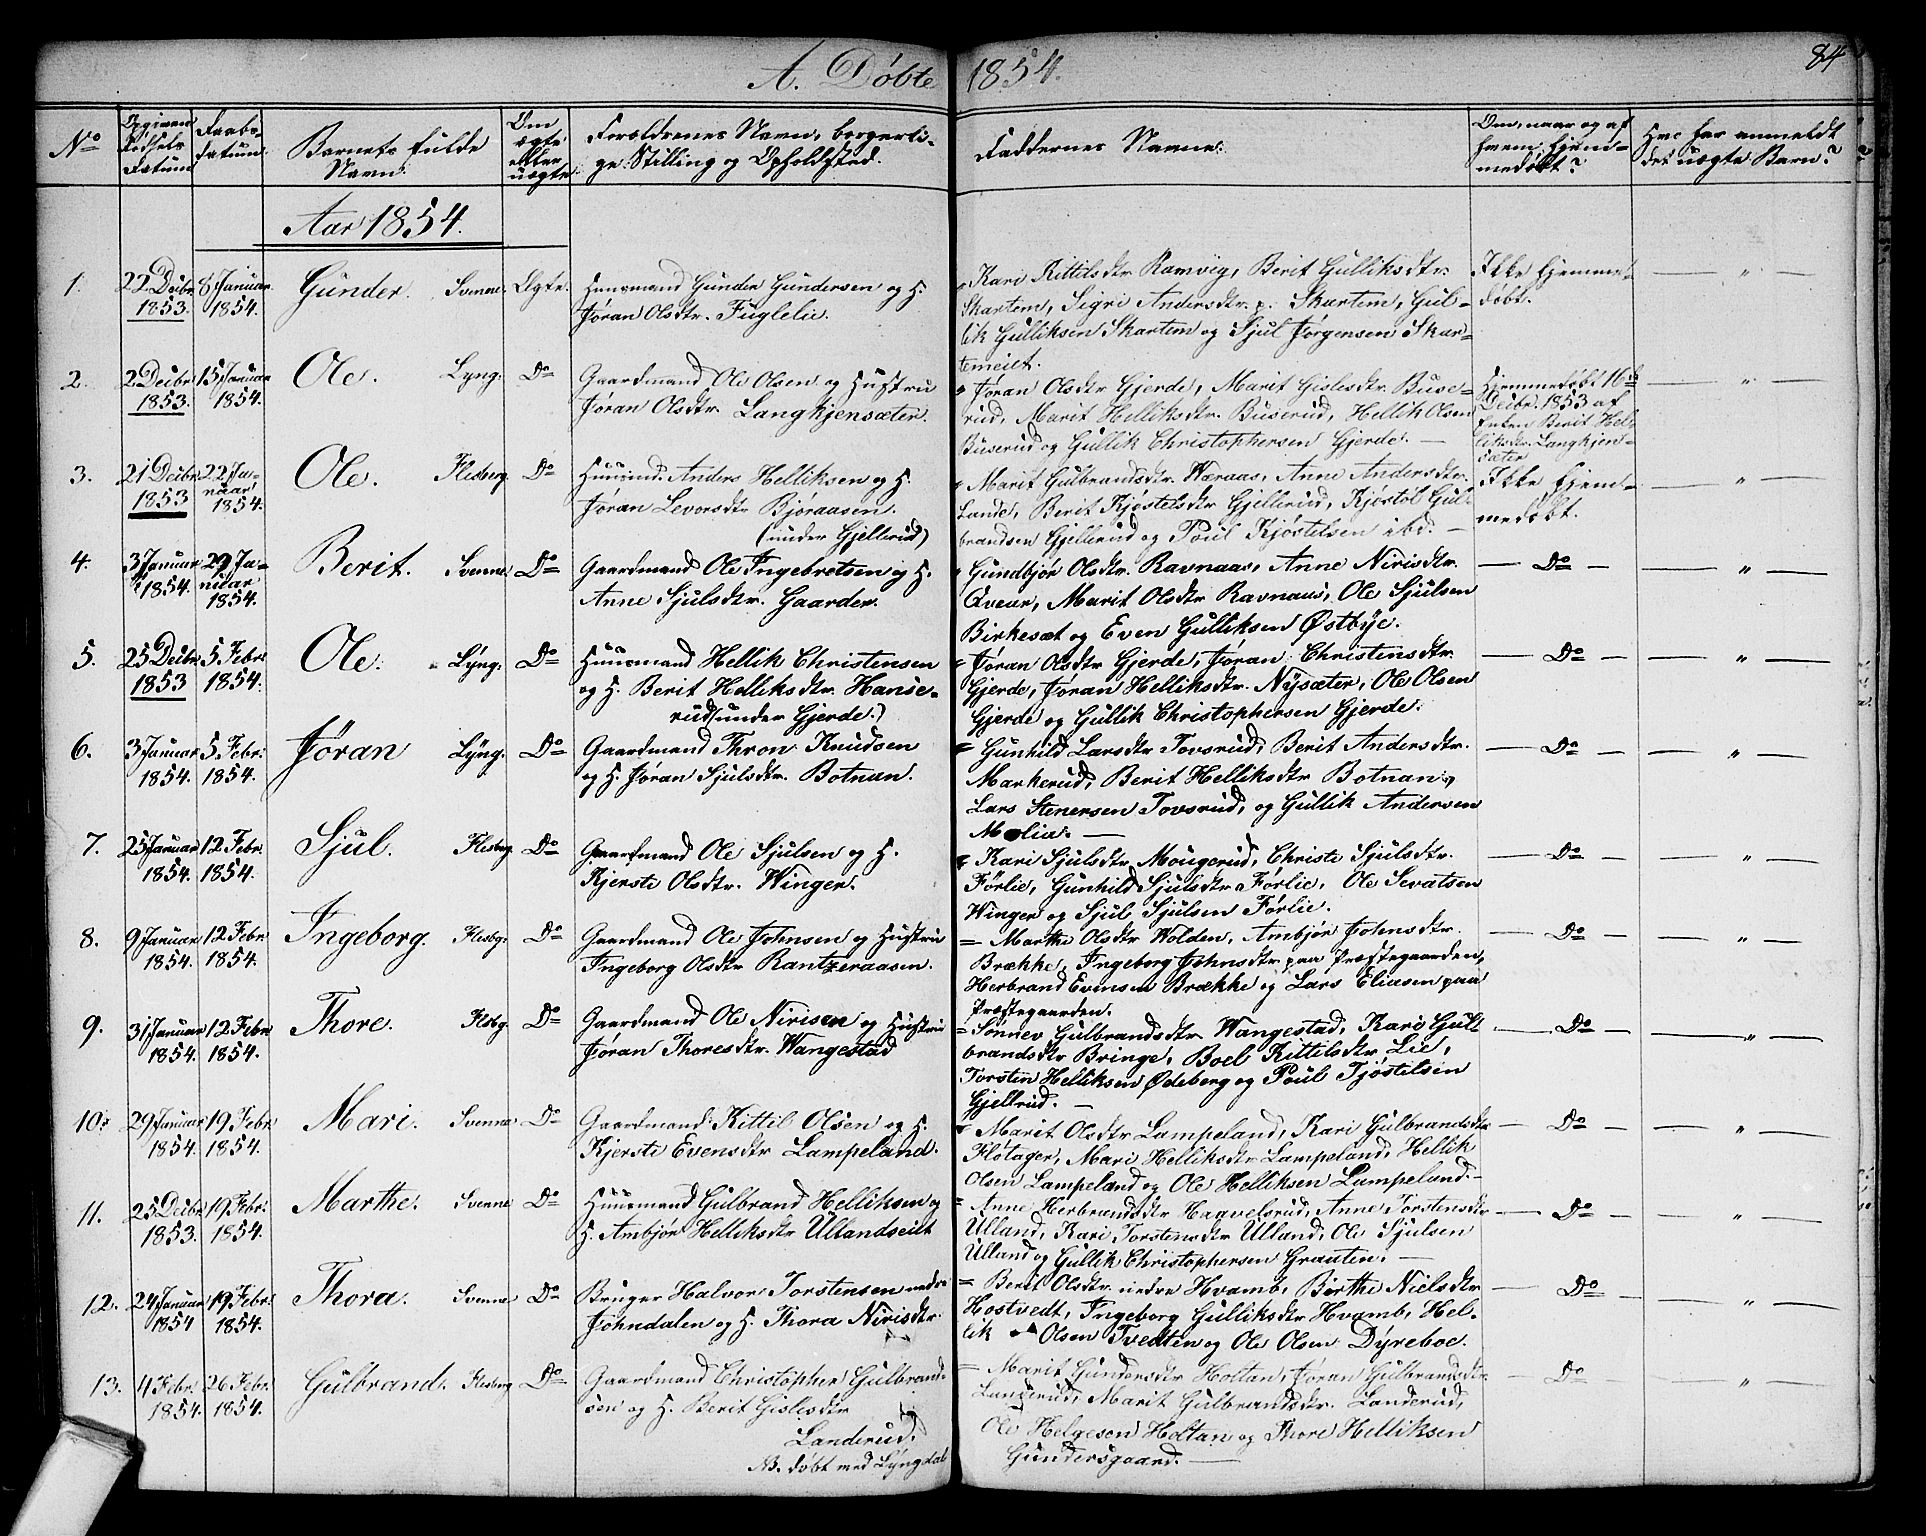 A. Døbte 1854.
84
No
Opgiven Fødsels Datum
Daabs-datum
Barnets fulde Navn.
Om ægte eller uægte.
Forældrenes Navn, borgerlige Stilling og Opholdssted.
Faddernes Navne.
Om, naar og af hvem hjemmedøbt?
Hvo har anmeldt det uægte Barn?
Aar 1854.
1. 22 Decbr. 1853. 8 Januar 1854. Gunder. Svenne. Ægte.
Huusmand Gunder Gundersen og H.
Jøran Olsdtr. Fuglelie.
Kari Kittilsdtr Ramvig, Berit Gulliksdtr.
Skartem, Sigri Andersdtr. p. Skartem, Gul-
lik Gulliksen Skartem og Sjul Jørgensen Skar-
temeiet.
Ikke hjemme-
døbt.
2. 2 Decbr. 1853. 15 Januar 1854. Ole. Lyng. Do
Gaardmand Ole Olsen og Hustru
Jøran Olsdtr. Langkjensæter.
Jøran Olsdtr Gjerde, Marit Gislesdtr. Buse-
rud, Marit Helliksdtr. Buserud, Hellik Olsen
Buserud og Gullik Christophersen Gjerde. —
Hjemmedøbt 16de
Decbr. 1853 af
Enken Berit Hel-
liksdtr. Langkjen-
sæter
3. 21 Decbr. 1853 22 Ja-
nuar 1854. Ole. Flesberg. Do
Huusmd. Anders Helliksen og H.
Jøran Levorsdtr Bjøraasen.
(under Gjellerud)
Marit Gulbrandsdtr. Væraas, Anne Andersdtr.
Lande, Berit Kjøstelsdtr Gjellerud, Kjøstol Gul-
brandsen Gjellerud og Poul Kjøstelsen ibd. —
Ikke hjem-
medøbt.
4. 3 Januar 1854. 29 Ja-
nuar 1854. Berit. Svenne. Do
Gaardmand Ole Ingebretsen og H.
Anne Sjulsdtr. Gaarder.
Gundbjør Olsdtr. Ravnaas, Anne Nirisdtr.
Qvear, Marit Olsdtr Ravnaas, Ole Sjulsen
Birkesæt og Even Gulliksen Østbye.
— Do —
5. 25 Decbr. 1853 5 Febr. 1854. Ole. Lyng. Do
Huusmand Hellik Christensen
og H. Berit Helliksdtr. Hanse-
rud (under Gjerde.)
Jøran Olsdtr Gjerde, Jøran Christensdtr.
Gjerde, Jøran Helliksdtr. Nysæter, Ole Olsen
Gjerde og Gullik Christophersen Gjerde.
— Do —
6. 3 Januar 1854. 5 Febr. 1854. Jøran Lyng. Do
Gaardmand Thron Knudsen
og H. Jøran Sjulsdtr. Botnan.
Gunhild Larsdtr Tovsrud, Berit Andersdtr.
Markerud, Berit Helliksdtr Botnan,
Lars Stenersen Tovsrud, og Gullik Andersen
Molia. —
— Do —
7. 25 Januar 1854. 12 Febr. 1854. Sjul. Flesbg. Do
Gaardmand Ole Sjulsen og H.
Kjersti Olsdtr. Winger.
Kari Sjulsdtr Mougerud, Christi Sjulsdtr.
Førlie, Gunhild Sjulsdtr Førlie, Ole Sevatsen
Winger og Sjul Sjulsen Førlie.
— Do —
8. 9 Januar 1854. 12 Febr. 1854. Ingeborg. Flesbg. Do
Gaardmand Ole Johnsen og Hustru
Ingeborg Olsdtr Rantzeraasen.
Marthe Olsdtr Wolden, Ambjør Johnsdtr.
Brække, Ingeborg Johnsdtr paa Præstegaarden,
Herbrand Evensen Brække og Lars Eliasen paa
Præstegaarden.
— Do —
9. 31 Januar 1854. 12 Febr. 1854. Thore. Flesbg. Do
Gaardmand Ole Nirisen og Hustru
Jøran Thoresdtr. Wangestad
Sønnev Gulbrandsdtr Wangestad, Kari Gul-
brandsdtr Bringe, Boel Kittilsdtr Lie,
Torsten Helliksen Ødeberg og Poul Tjøstelsen
Gjellrud. —
— Do —
10. 29 Januar 1854. 19 Febr. 1854. Mari. Svenne Do
Gaardmand Kittil Olsen og H.
Kjersti Evensdtr Lampeland.
Marit Olsdtr Lampeland, Kari Gulbrandsdtr
Flotager, Mari Helliksdtr Lampeland, Hellik
Olsen Lampeland og Ole Helliksen Lampeland.
— Do —
11. 25 Decbr. 1853. 19 Febr. 1854. Marthe. Svenne Do
Huusmand Gulbrand Helliksen og
H. Ambjør Helliksdtr Ullandseiet
Anne Herbrandsdtr Hagvelsrud, Anne Torstensdtr
Ulland, Kari Torstensdtr Ulland, Ole Sjulsen
Ulland og Gullik Christophersen Grauten. —
— Do —
12. 24 Januar 1854 19 Febr. 1854. Thora. Svenne Do
Bruger Halvor Torstensen nedre
Johndalen og H. Thora Nirisdtr.
Berit Olsdtr. nedre Hvamb, Birthe Nielsdtr
Hostvedt, Ingeborg Gulliksdtr Hvamb, Hel-
lik Olsen Tvedten og Ole Olsen Dyreboe.
— Do —
13. 4 Febr. 1854. 26 Febr. 1854. Gulbrand. Flesberg Do
Gaardmand Christopher Gulbrand-
sen og H. Berit Gislesdtr
Landerud.
NB. døbt med Lyngdal
Marit Gundersdtr Holtan, Jøran Gulbrandsdtr
Landerud, Marit Gulbrandsdtr. Landerud,
Ole Helgesen Holtan og Thore Helliksen
Gundersgaard. —
— Do